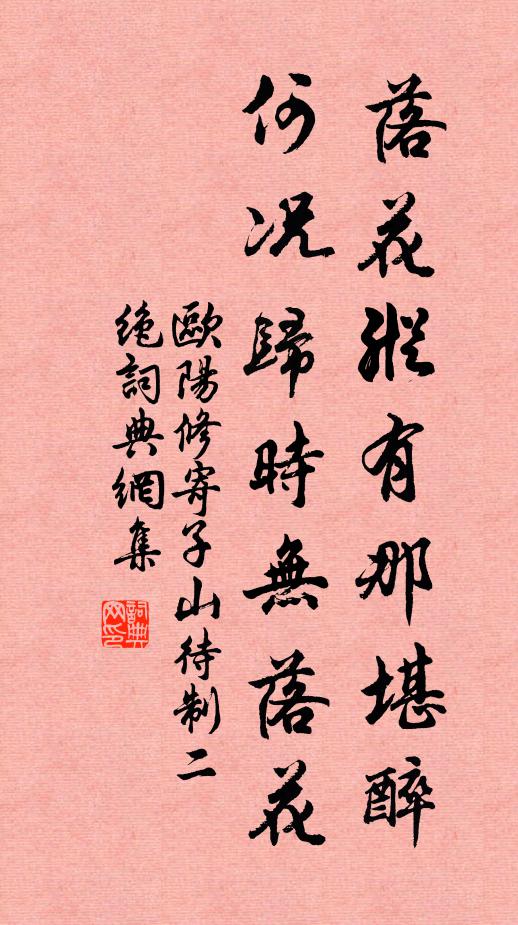 落花縱有那堪醉
何况歸時無落花
歐陽修寄子山待制二
絶詞典網集
詞典网印